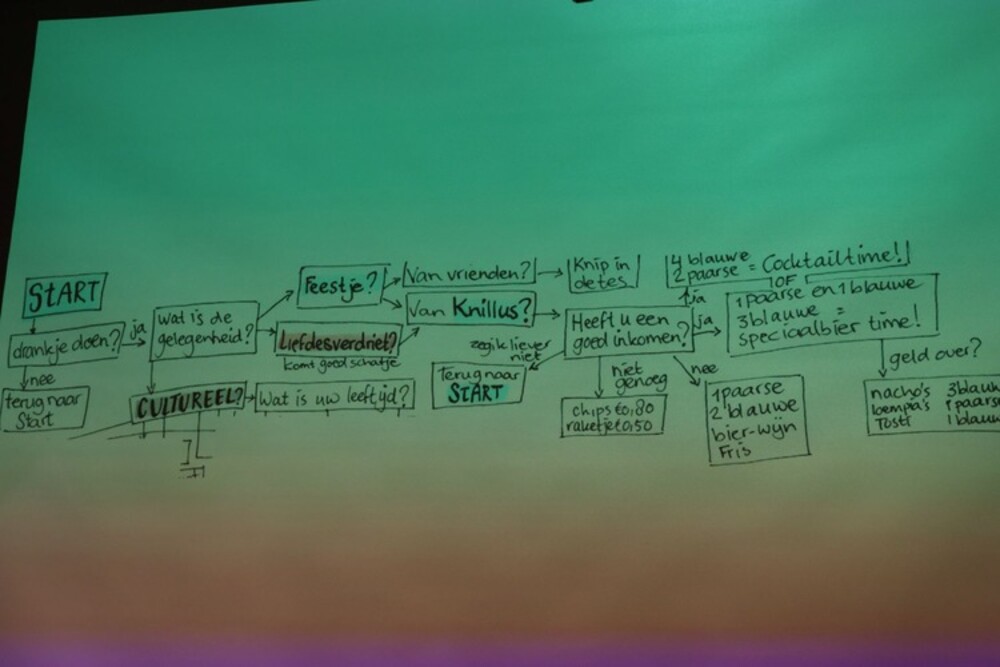 START
drankje doen?
ja
nee
terug naar
Start
wat is de
gelegenheid?
Feestje?
Liefdesverdriet?
komt goed schatje
CULTUREEL?
Wat is uw leeftijd?
Van vrienden?
Van Knillus?
Knip in
de tes
Heeft u een
goed inkomen?
zeg ik liever
niet
Terug naar
START
niet
genoeg
chips €0,80
raketje €0,50
nee
1 paarse
2 blauwe
bier-wijn
Fris
ja
4 blauwe
2 paarse = Cocktailtime!
OF
ja
1 paarse en 1 blauwe
3 blauwe =
speciaalbier time!
geld over?
nacho's 3 blauw
loempia's 1 paarse
Tosti 1 blauw